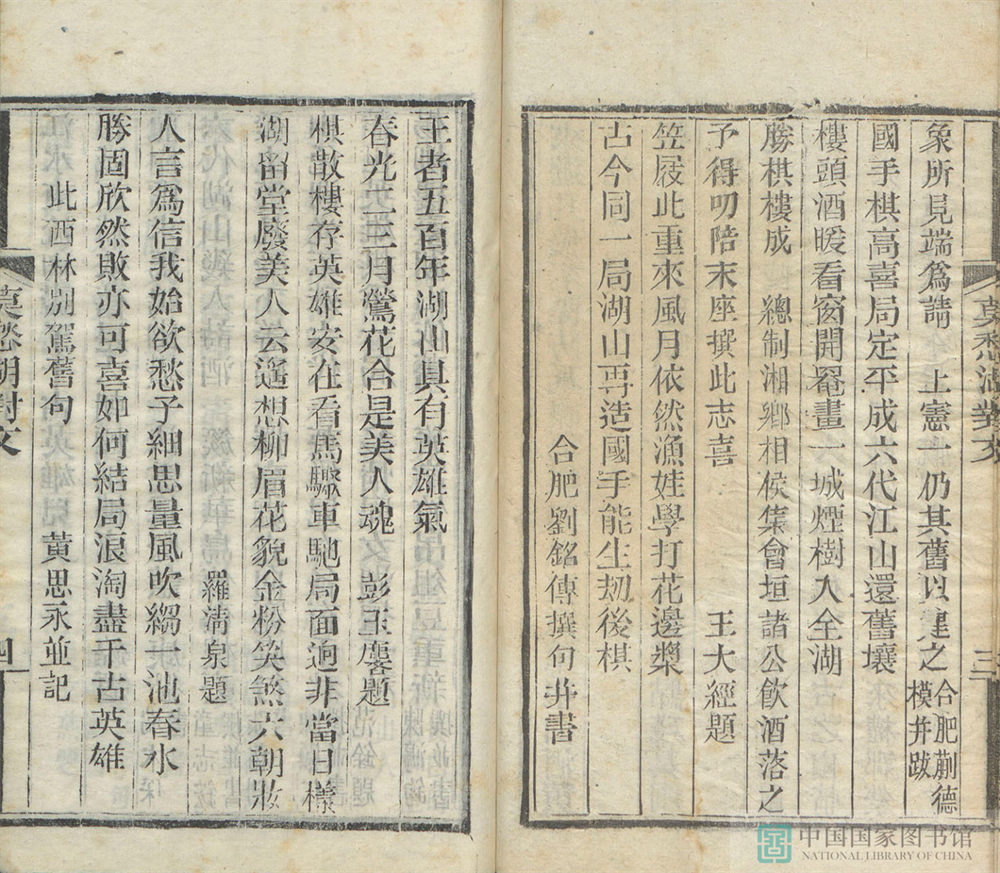 象所見端爲請　上憲一仍其舊以建之合肥蒯德模并跋
國手棋高喜局定平成六代江山還舊壤
樓頭酒暖看窗開罨畫一城煙樹入全湖
勝棋樓成　總制湘鄉相侯集會垣諸公飲酒落之
予得叨陪末座撰此志喜　王大經題
笠屐此重來風月依然漁娃學打花邊槳
古今同一局湖山再造國手能生刼後棋
合肥劉銘傳撰句并書
莫愁湖對文
三
王者五百年湖山具有英雄氣
春光二三月鶯花合是美人魂　彭玉麐題
棋散樓存英雄安在看馬驟車馳局面迥非當日樣
湖留堂廢美人云遙想柳眉花貌金粉笑煞六朝妝
羅淸泉題
人言爲信我始欲愁子細思量風吹縐一池春水
勝固欣然敗亦可喜如何結局浪淘盡千古英雄
此西林別駕舊句　黃思永並記
莫愁湖對文
四
中国国家图书馆
NATIONAL LIBRARY OF CHINA